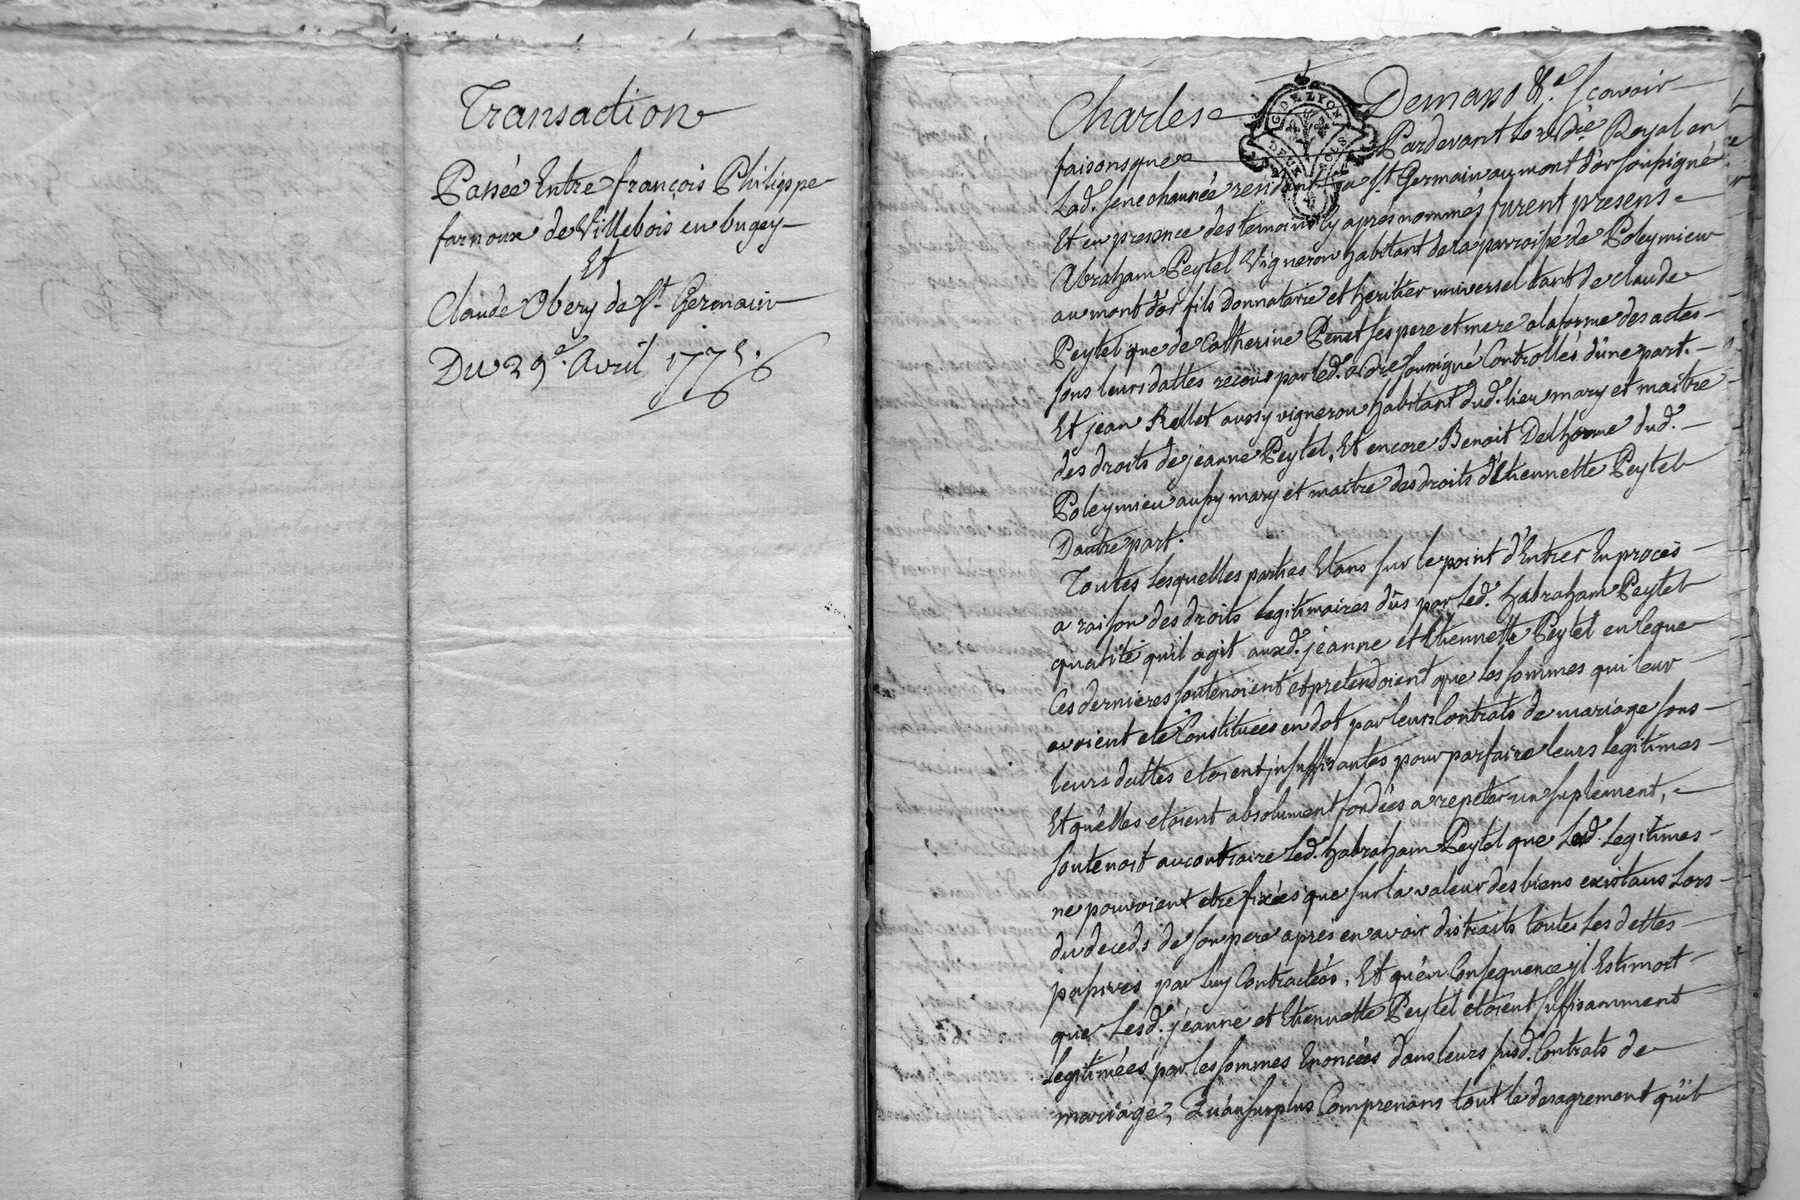 Transaction
Passée Entre françois Philippe
farnoux de Villebois en bugey
Et
Claude Obery de St. Germain
Du 29e. Avril 1775.
Charles Demaso &a. Sçavoir
faisons que Pardevant le nore Royal en
G. DE LYON
DEUX SOLS
Lad. senechaussée resident a St Germain au mont d'or soussigné
Et en presence des temoins cy apres nommés furent presens
Abraham Peytel Vigneron habitant de la parroisse de Poleymieu
au mont d'or fils Donnataire et heritier universel tant de claude
Peytel que de Catherine Penet ses pere et mere a la forme des actes
sous leurs dattes recûs par led. nore soussigné Controllés d'une part.
Et jean Rollet aussy vigneron habitant dud. lieu mary et maitre
des droits de jeanne Peytel, Et encore Benoit Delhorme dud.
Poleymieu aussy mary et maitre des droits d'Etiennette Peytel
D'autre part.
Toutes lesquelles parties Etans sur le point d'Entrer En procès
a raison des droits legitimaires dûs par led. habraham Peytel
qualité qu'il agit auxd. jeanne et Etiennette Peytel en ce que
Ces dernieres soutenoient et pretendoient que les sommes qui leur
avoient eté Constituées en dot par leurs Contrats de mariage sous
leurs dattes etoient insuffizantes pour parfaire leurs legitimes
Et qu'elles etoient absolument fondées a repeter un suplement,
soutenoit au contraire led. habraham Peytel que lesd. legitimes
ne pouvoient etre fixées que sur la valeur des biens existans lors
du deceds de son pere apres en avoir distraits toutes les dettes
passives par luy Contractées, Et qu'en Consequence il Estimoit
que lesd. jeanne et Etiennette Peytel etoient suffisamment
legitimées par les sommes Enoncées dans leurs susd. Contrats de
mariage, Qu'au surplus Comprenans tout le desagrement qu'il